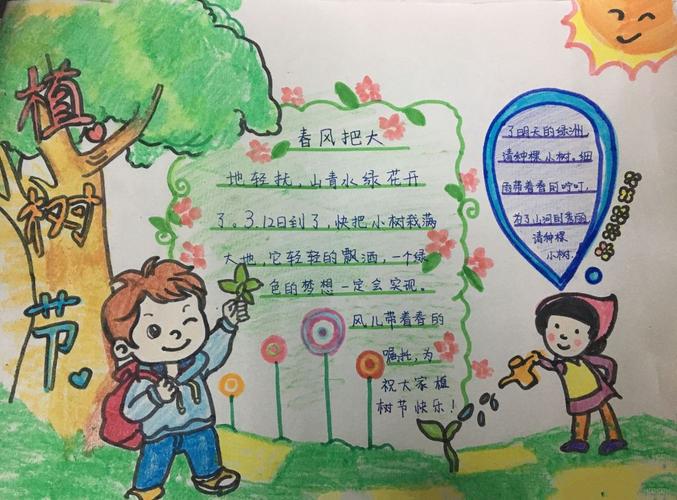 植
树
节
春风把大
地轻抚,山青水绿花开
了。3.12日到了,快把小树栽满
大地,它轻轻的飘洒,一个绿
色的梦想一定会实现。
风儿带着春的
嘱托,为
祝大家植
树节快乐!
了明天的绿洲,
请种棵小树。细
雨带着春的叮咛,
为了山河的秀丽
请种棵
小树.